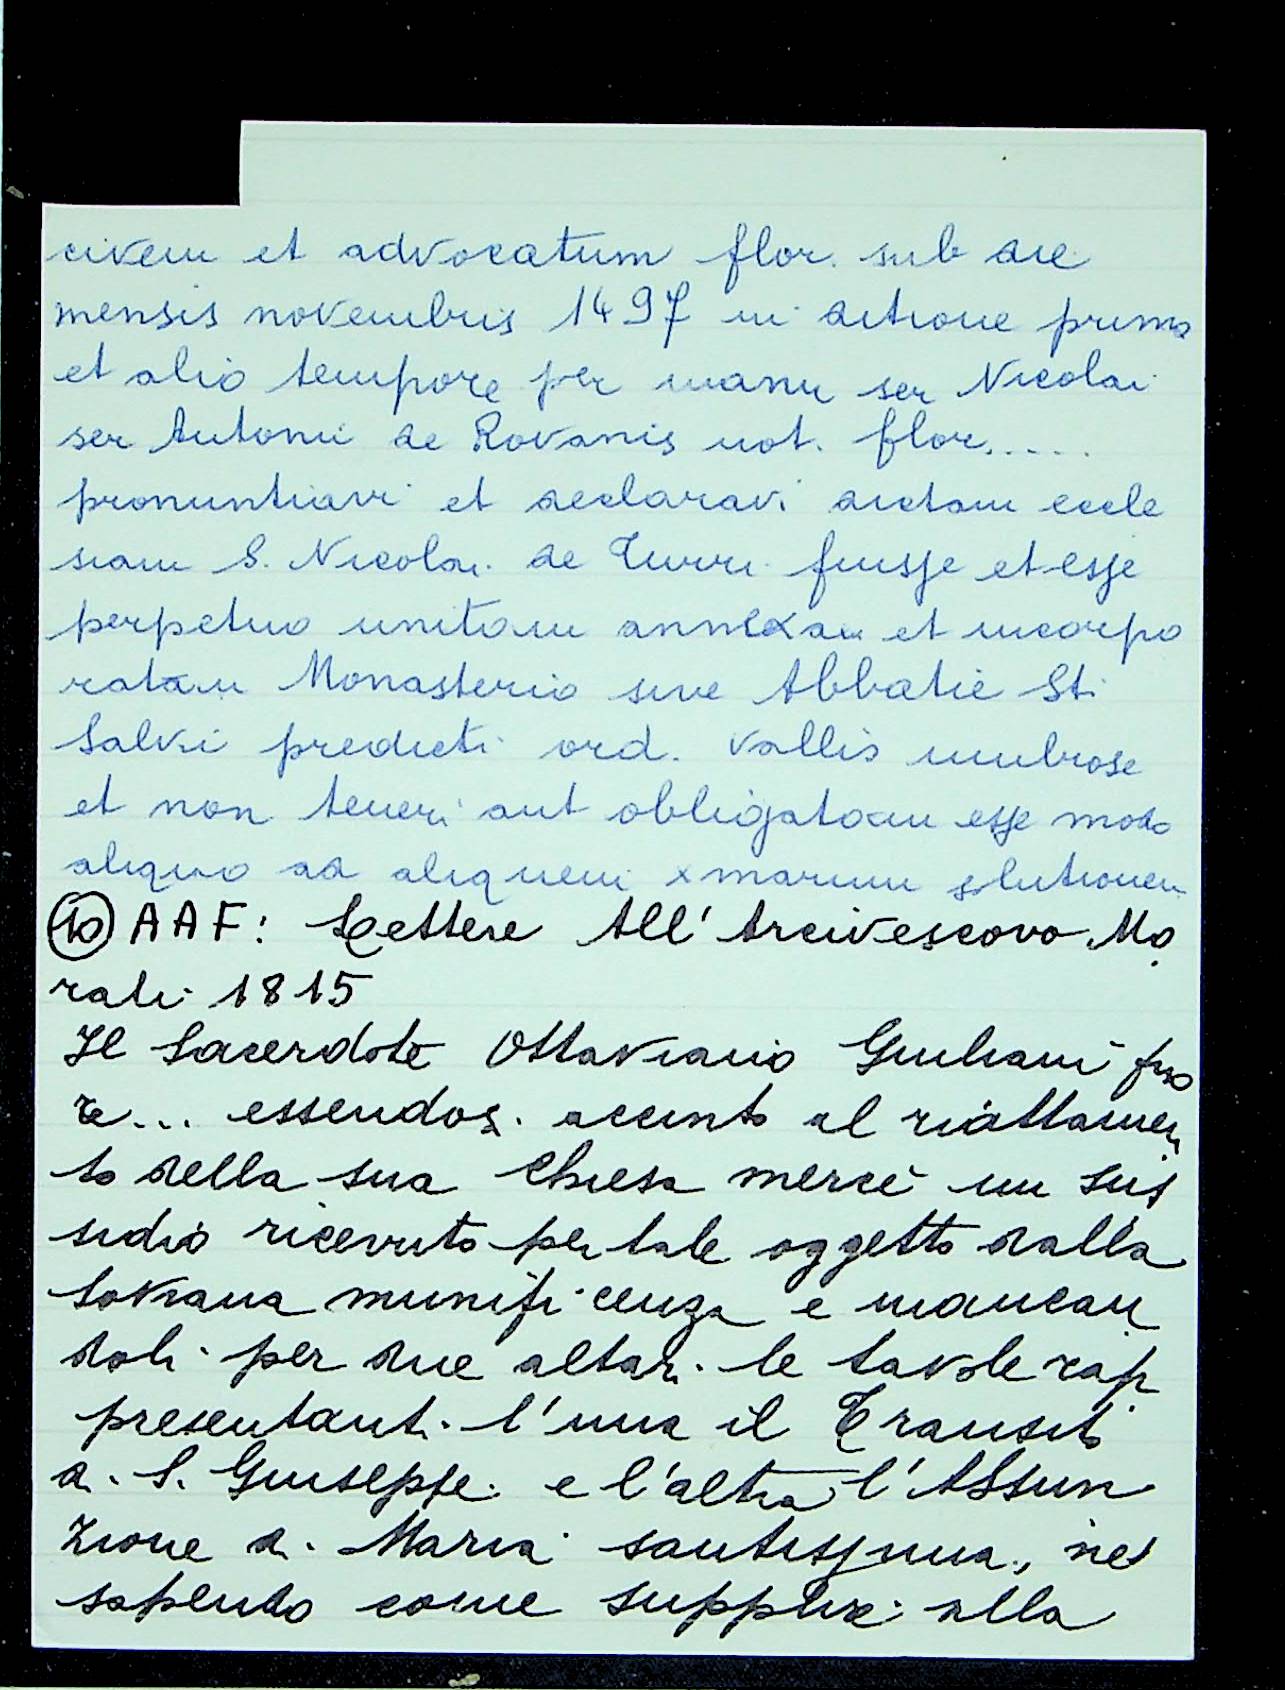 civem et advocatum flor. sub die
mensis novembris 1497 in actione prima
et alio tempore per manu ser Nicolai
ser Antonii de Rovanis not. flor.....
pronuntiavi et declaravi dictam eccle
siam S. Nicolai de Turri fuisse et esse
perpetuo unitam annexam et incorpo
ratam Monasterio sive Abbatie Sti
Salvii predicti ord. Vallis umbrose
et non teneri aut obligatam esse modo
aliquo ad aliquem xmarum solutionem
(10) AAF: Lettere All'Arcivescovo Mo
rali 1815
Il Sacerdote Ottaviano Giuliani prio
re... essendosi accinto al riattamen
to della sua Chiesa mercè un sus
sidio ricevuto per tale oggetto dalla
Sovrana munificenza e mancan
doli per due altari le tavole rap
presentanti l'una il Transito
di S. Giuseppe e l'altra l'Assun
zione di Maria santissima, nè
sapendo come supplire alla